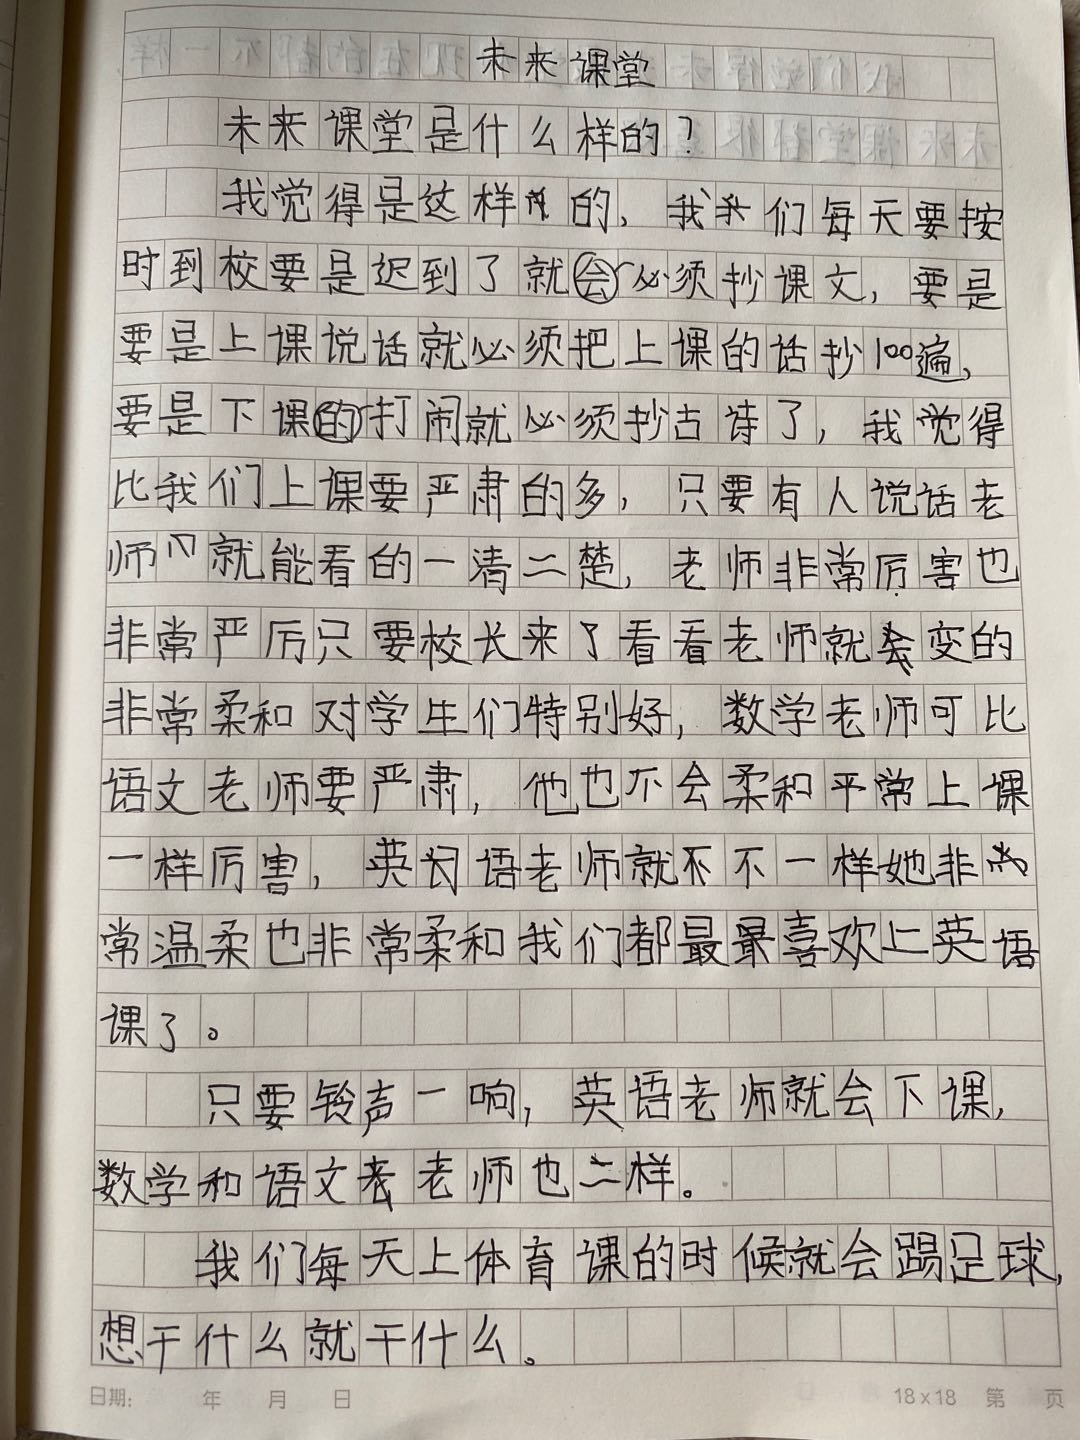 未来课堂
未来课堂是什么样的？
我觉得是这样的，我们每天要按
时到校要是迟到了就会必须抄课文，要是
要是上课说话就必须把上课的话抄100遍，
要是下课的打闹就必须抄古诗了，我觉得
比我们上课要严肃的多，只要有人说话老
师就能看的一清二楚，老师非常厉害也
非常严厉只要校长来了看看老师就会变的
非常柔和对学生们特别好，数学老师可比
语文老师要严肃，他也不会柔和平常上课
一样厉害，英语老师就不不一样她非
常温柔也非常柔和我们都最最喜欢上英语
课了。
只要铃声一响，英语老师就会下课，
数学和语文老师也一样。
我们每天上体育课的时候就会踢足球，
想干什么就干什么。
日期： 年 月 日 18×18 第 页